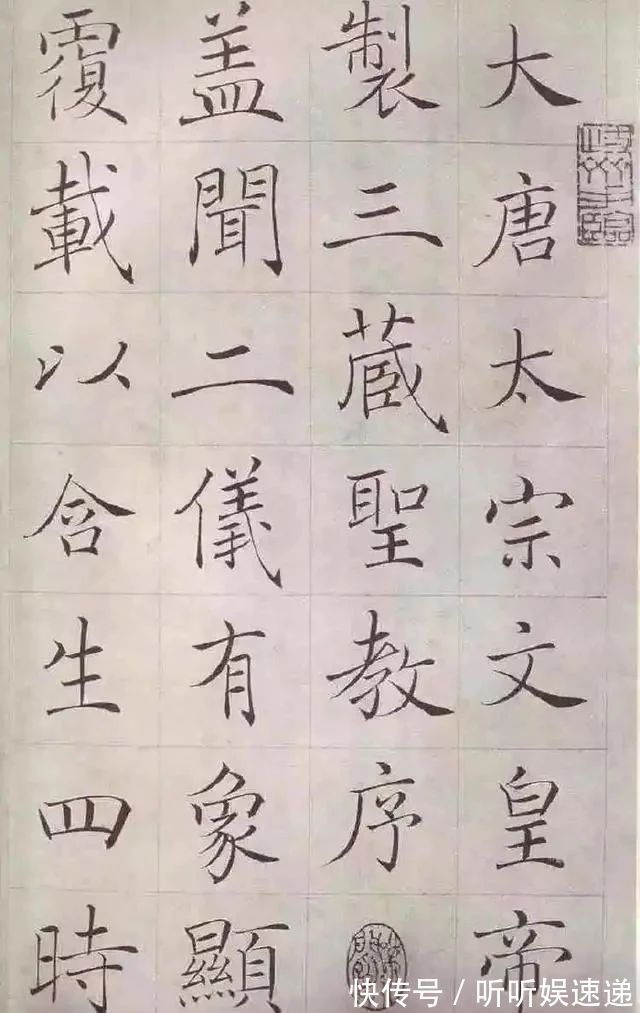 大唐太宗文皇帝
製三蔵聖教序
盖聞二儀有象顯
覆載以含生四時
快传号/听听娱速递